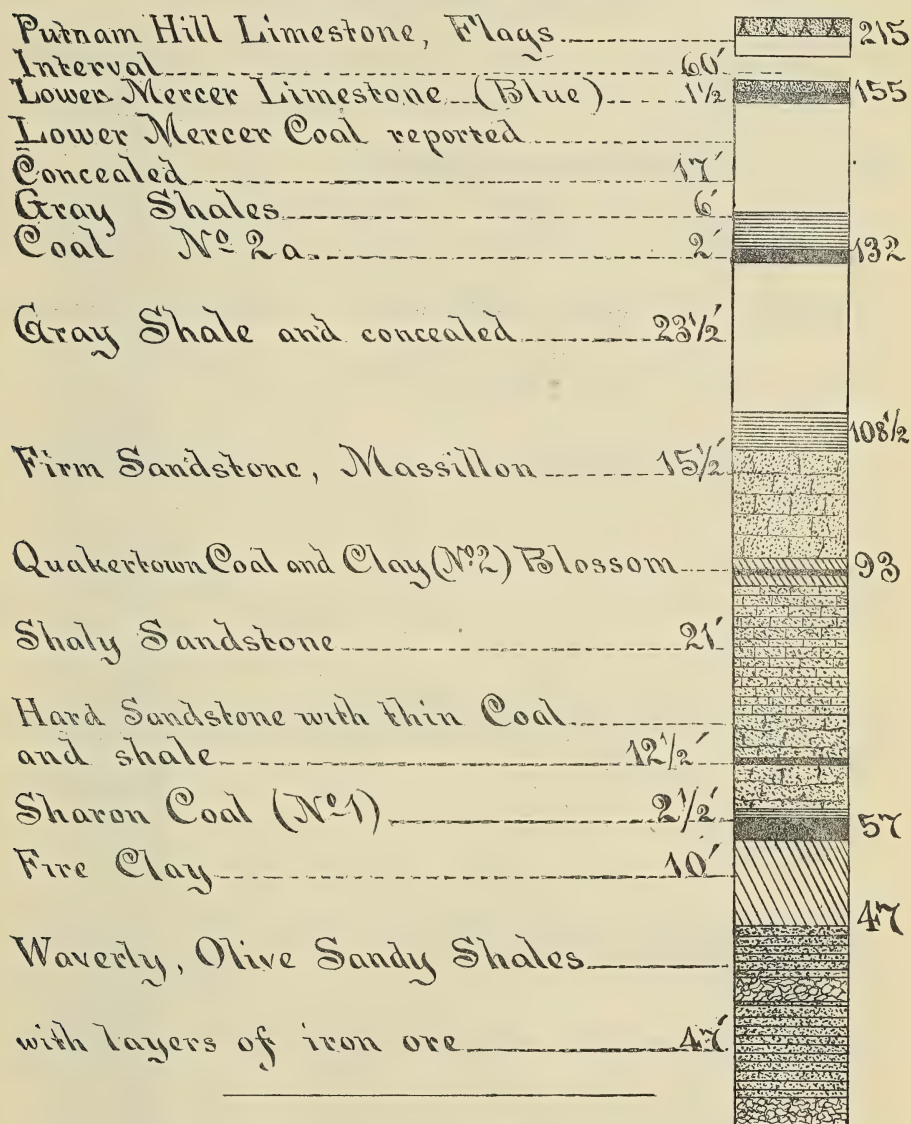 Putnam Hill Limestone, Flags 215
Interval 60'
Lower Mercer Limestone (Blue) 1½ 155
Lower Mercer Coal reported
Concealed 17'
Gray Shales 6'
Coal Nº 2a. 2' 132
Gray Shale and concealed 23½'
108½
Firm Sandstone, Massillon 15½'
Quakertown Coal and Clay (Nº2) Blossom 93
Shaly Sandstone 21'
Hard Sandstone with thin Coal
and shale 12½'
Sharon Coal (Nº1) 2½' 57
Fire Clay 10'
47
Waverly, Olive Sandy Shales
with layers of iron ore 47'